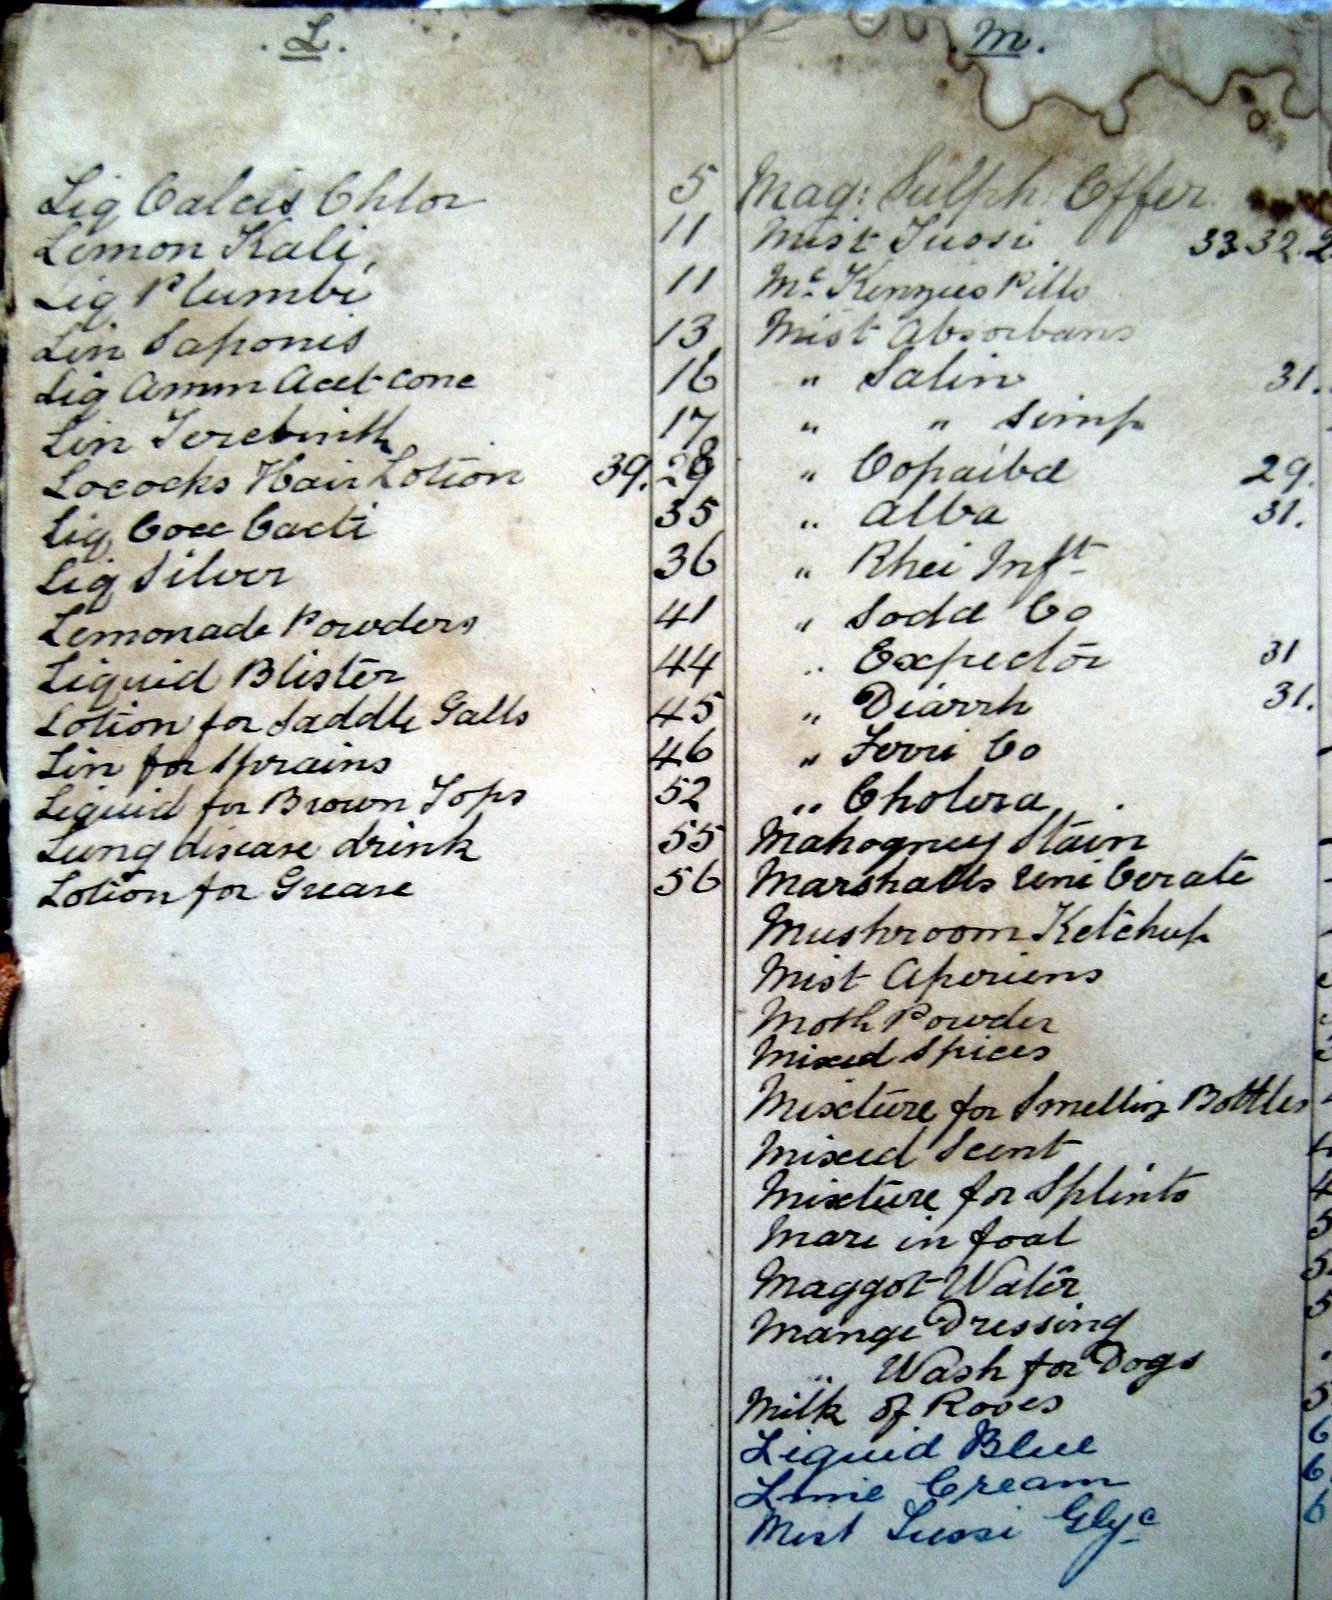 . L .
Liq Calcis Chlor 5
Lemon Kali 11
Liq Plumbi 11
Lin Saponis 13
Liq Amm Acet conc 16
Lin Terebinth 17
Lococks Hair Lotion 39. 28
Liq Cocc Cacti 35
Liq Silver 36
Lemonade Powders 41
Liquid Blister 44
Lotion for Saddle Galls 45
Lin for Sprains 46
Liquid for Brown Tops 52
Lung disease drink 55
Lotion for Grease 56
. M .
Mag: Sulph: Effer
Mist Tussi 33 32. 2
Mc. Kenzies Pills
Mist Absorbans
" Salin 31.
" " Simp
" Copaiba 29.
" Alba 31.
" Rhei Inft
" Soda Co
" Expector 31
" Diarrh 31.
" Ferri Co
" Cholera
Mahogney Stain
Marshalls Uni Cerate
Mushroom Ketchup
Mist Aperiens
Moth Powder
Mixed Spices
Mixture for Smelling Bottles
Mixed Scent 4
Mixture for Splints 4
Mare in foal 5
Maggot Water 5
Mange Dressing 5
" Wash for Dogs
Milk of Roses 5
Liquid Blue 6
Lime Cream 6
Mist Tussi Glyc 6